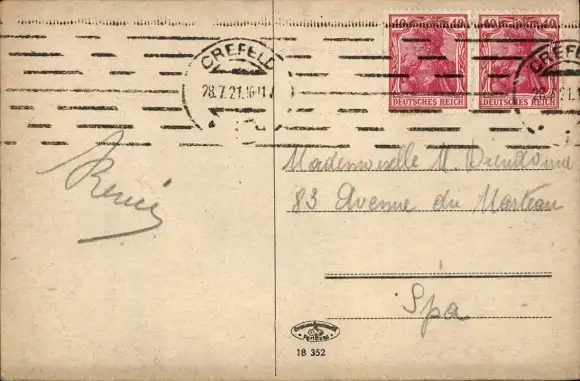 CREFELD
28.7.21.
CREFELD
28.
40 40
40 40
DEUTSCHES REICH
DEUTSCHES REICH
René
Mademoiselle M.
83 Avenue du Marteau
Spa
18 352